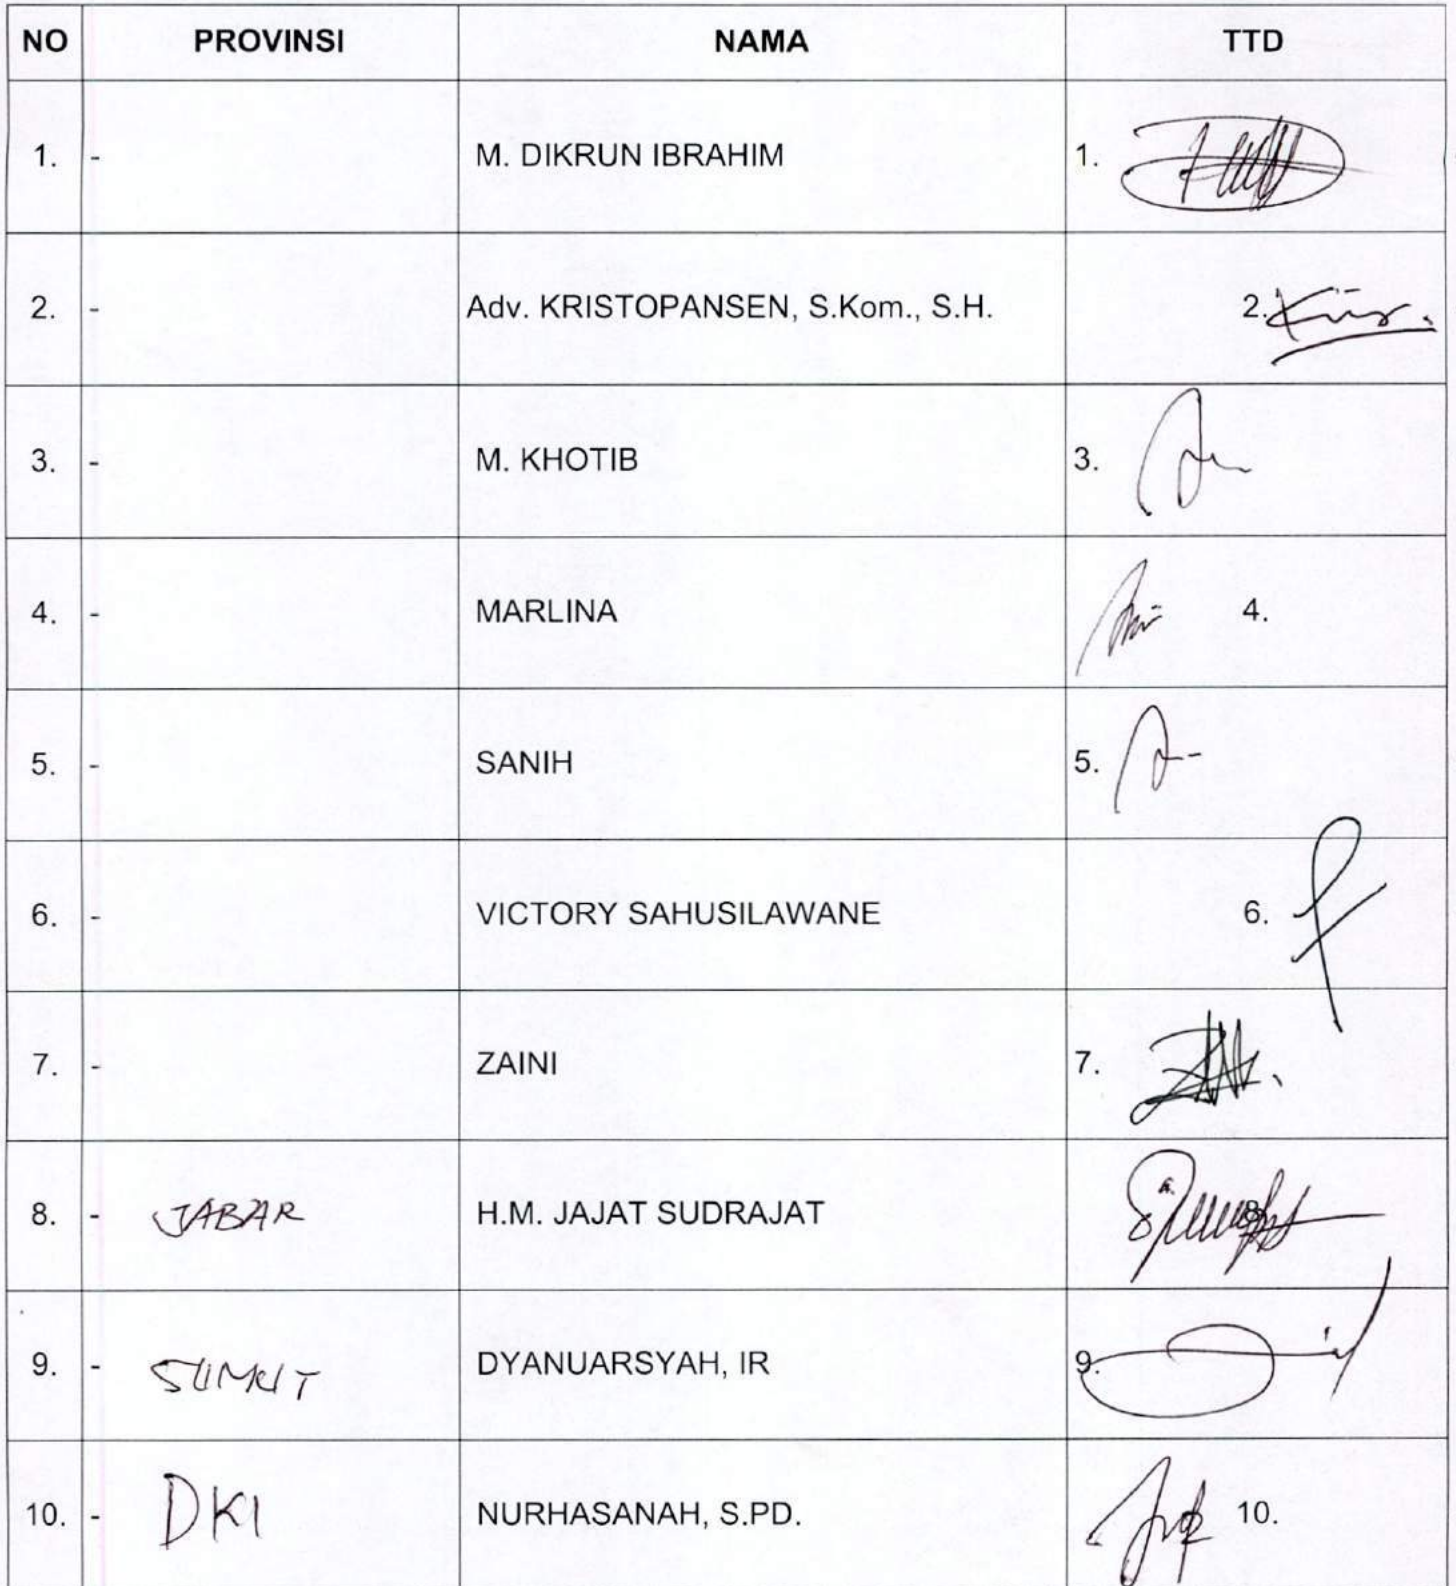 NO PROVINSI NAMA TTD
1. - M. DIKRUN IBRAHIM 1.
2. - Adv. KRISTOPANSEN, S.Kom., S.H. 2.
3. - M. KHOTIB 3.
4. - MARLINA 4.
5. - SANIH 5.
6. - VICTORY SAHUSILAWANE 6.
7. - ZAINI 7.
8. - JABAR H.M. JAJAT SUDRAJAT 8.
9. - DYANUARSYAH, IR 9.
10. - DKI NURHASANAH, S.PD. 10.